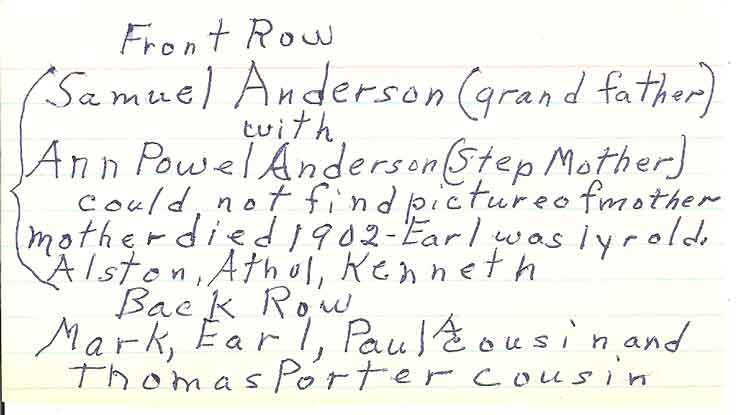 Front Row
Samuel Anderson (grand father)
with
Ann Powel Anderson (Step Mother)
could not find picture of mother
mother died 1902 - Earl was 1 yr old.
Alston, Athol, Kenneth
Back Row
Mark, Earl, Paul A cousin and
Thomas Porter cousin